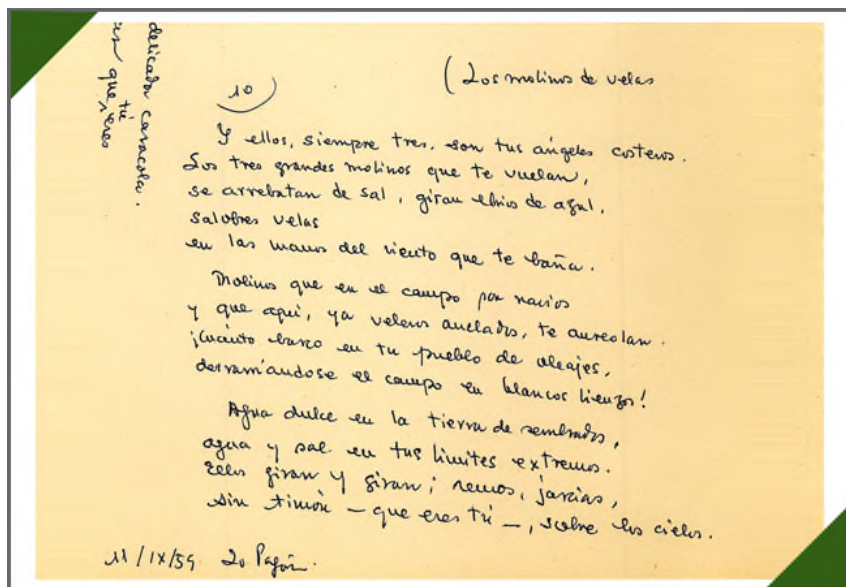 delicada caracola.
que tú
eres
(Los molinos de velas
10)
Y ellos, siempre tres, son tus ángeles costeros.
Los tres grandes molinos que te vuelan,
se arrebatan de sal, giran ebrios de azul,
salobres velas
en las manos del viento que te baña.
Molinos que en el campo son navíos
y que aquí, ya veleros anclados, te aureolan.
¡Cuánto barco en tu pueblo de oleajes,
derramándose el campo en blancos lienzos!
Agua dulce en la tierra de sembrados,
agua y sal en tus límites extremos.
Ellos giran y giran; remos, jarcias,
sin timón — que eres tú —, sobre los cielos.
11/IX/59 Lo Pagán.